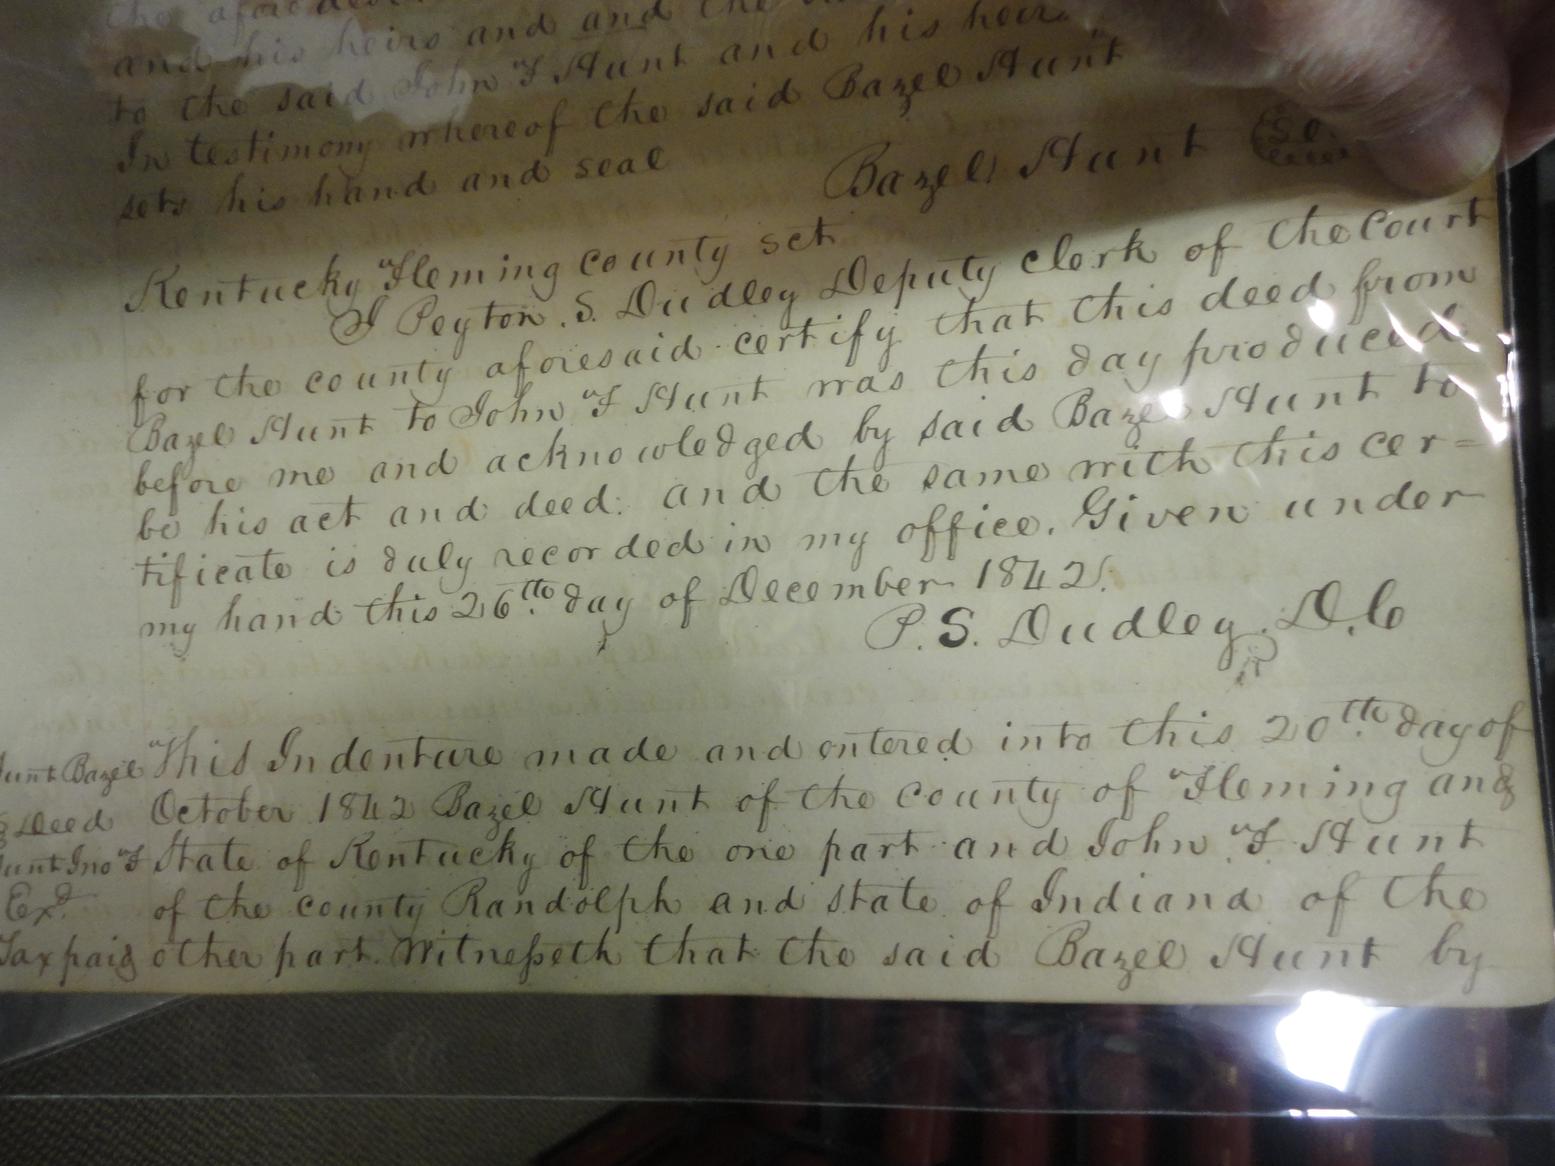 the afore
and his heirs and and the
to the said John F Hunt and his heirs
In testimony whereof the said Bazel Hunt
sets his hand and seal
Bazel Hunt
Kentucky Fleming county sct
I Peyton. S. Dudley Deputy clerk of the Court
for the county aforesaid certify that this deed from
Bazel Hunt to John F Hunt was this day produced
before me and acknowledged by said Bazel Hunt to
be his act and deed: and the same with this cer=
tificate is duly recorded in my office. Given under
my hand this 26th day of December 1842.
P. S. Dudley. D. C
unt Bazel This Indenture made and entered into this 20th day of
Deed October 1842 Bazel Hunt of the county of Fleming and
unt Jno F State of Kentucky of the one part and John F Hunt
Exd of the county Randolph and state of Indiana of the
Tax paid other part. Witnesseth that the said Bazel Hunt by